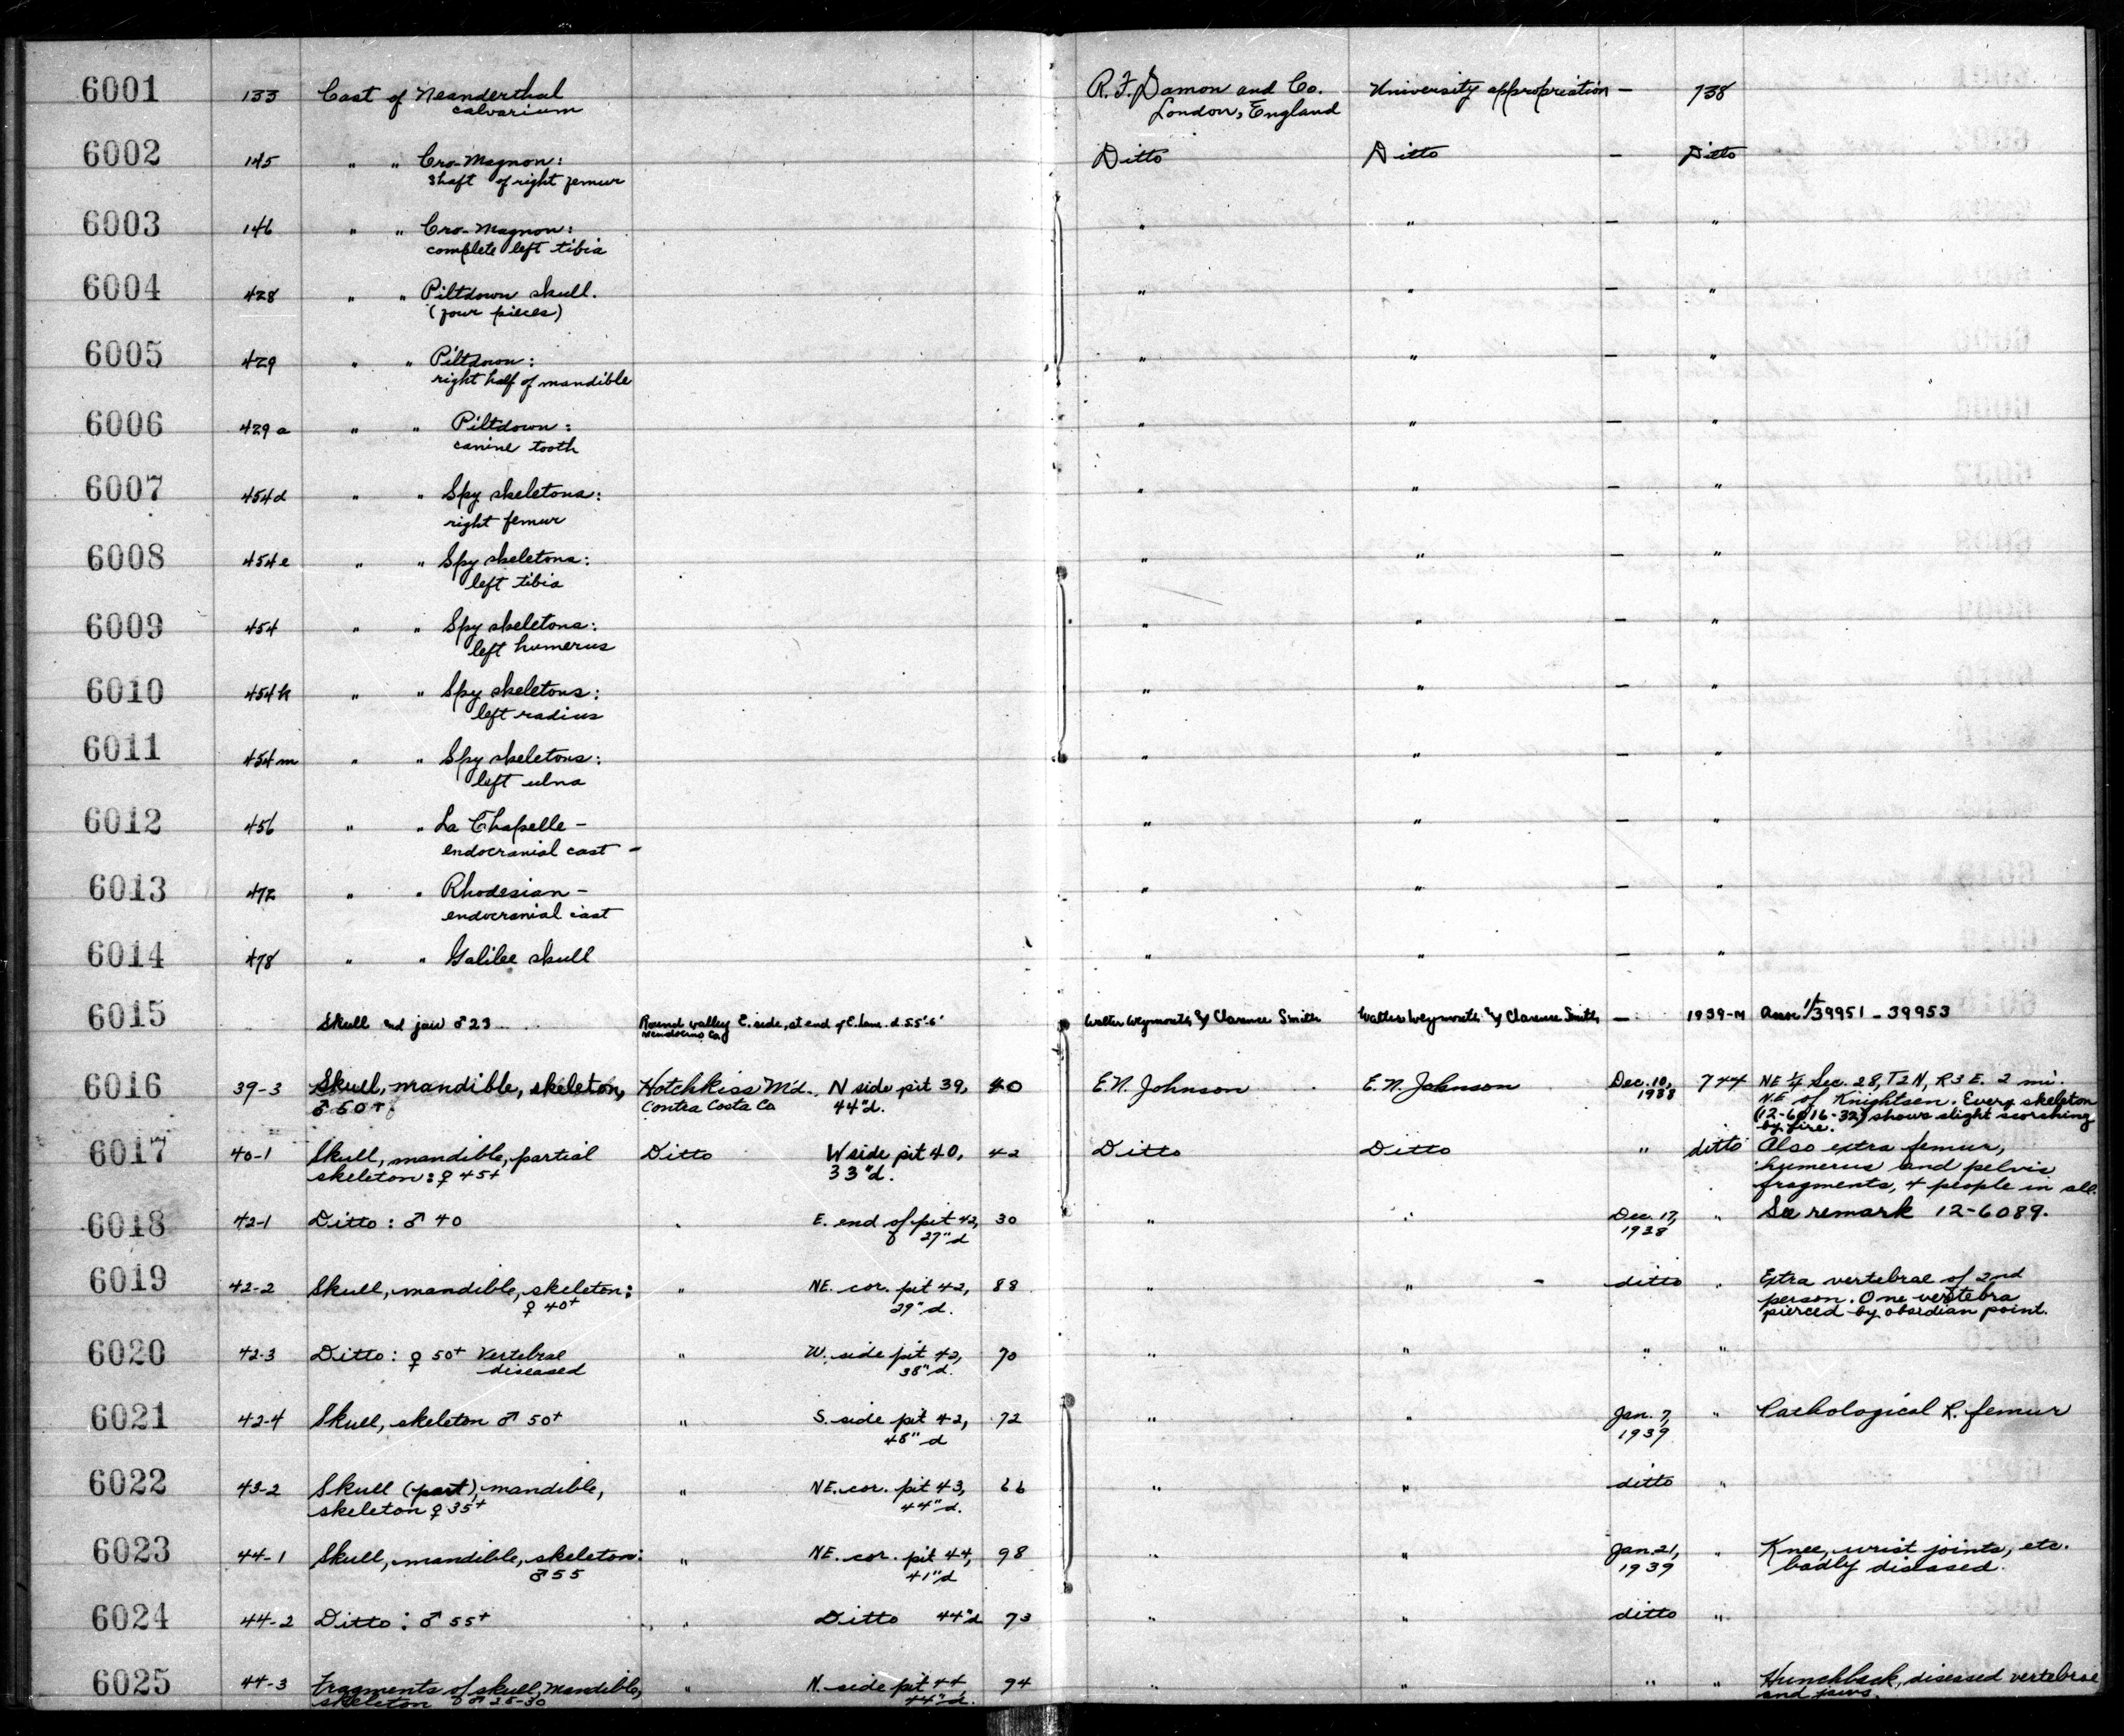 6001 133 Cast of Neanderthal R. F. Damon and Co. University appropriation — 738
calvarium London, England
6002 145 " " Cro-Magnon: Ditto Ditto — Ditto
shaft of right femur
6003 146 " " Cro-Magnon: " " — "
complete left tibia
6004 428 " " Piltdown skull. " " — "
(four pieces)
6005 429 " " Piltdown: " " — "
right half of mandible
6006 429a " " Piltdown: " " — "
canine tooth
6007 454d " " Spy skeletons: " " — "
right femur
6008 454e " " Spy skeletons: " " — "
left tibia
6009 454 " " Spy skeletons: " " — "
left humerus
6010 454k " " Spy skeletons: " " — "
left radius
6011 454m " " Spy skeletons: " " — "
left ulna
6012 456 " " La Chapelle – " " — "
endocranial cast –
6013 472 " " Rhodesian – " " — "
endocranial cast
6014 478 " " Galilee skull " " — "
6015 Skull and jaw ♂ 23 Round valley E. side, at end of E. lane. d. 5.5'-6' Walter Weymouth & Clarence Smith Walter Weymouth & Clarence Smith — 1939-M 39951 - 39953
Mendocino Co
6016 39-3 Skull, mandible, skeleton, Hotchkiss M'd., N side pit 39, 40 E. N. Johnson E. N. Johnson Dec. 10, 744 NE ¼ Sec. 28, T2N, R3E. 2 mi.
♂ 50+ Contra Costa Co 44"d. 1938 N.E of Knightsen. Every skeleton
(12-6016-32) shows slight scorching
by fire.
6017 40-1 Skull, mandible, partial Ditto W side pit 40, 42 Ditto Ditto " ditto Also extra femur,
skeleton: ♀ 45+ 33"d. humerus and pelvis
fragments, 4 people in all.
6018 42-1 Ditto: ♂ 40 " E. end of pit 42, 30 " " Dec. 17, " See remark 12-6089.
27"d 1938
6019 42-2 Skull, mandible, skeleton: " NE. cor. pit 42, 88 " " ditto " Extra vertebrae of 2nd
♀ 40+ 29"d. person. One vertebra
pierced by obsidian point.
6020 42-3 Ditto: ♀ 50+ Vertebral " W. side pit 42, 70 " " " "
diseased 38"d.
6021 42-4 Skull, skeleton ♂ 50+ " S. side pit 42, 72 " " Jan. 7, " Pathological R. femur
48"d 1939
6022 43-2 Skull (part), mandible, " NE. cor. pit 43, 66 " " ditto "
skeleton ♀ 35+ 44"d.
6023 44-1 Skull, mandible, skeleton: " NE. cor. pit 44, 98 " " Jan. 21, " Knee, wrist joints, etc.
♂ 55 41"d 1939 badly diseased.
6024 44-2 Ditto: ♂ 55+ " Ditto 44"d 73 " " ditto "
6025 44-3 Fragments of skull, mandible, " N. side pit 44 94 " " " " Hunchback, diseased vertebrae
skeleton ♂ 25-30 44"d. and jaws.